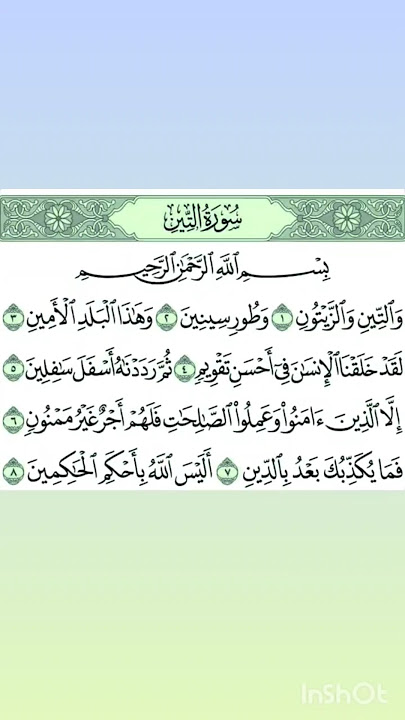 سُورَةُ التِّينِ
بِسْمِ ٱللَّهِ ٱلرَّحْمَٰنِ ٱلرَّحِيمِ
وَٱلتِّينِ وَٱلزَّيْتُونِ ١ وَطُورِ سِينِينَ ٢ وَهَٰذَا ٱلْبَلَدِ ٱلْأَمِينِ ٣
لَقَدْ خَلَقْنَا ٱلْإِنسَٰنَ فِىٓ أَحْسَنِ تَقْوِيمٍ ٤ ثُمَّ رَدَدْنَٰهُ أَسْفَلَ سَٰفِلِينَ ٥
إِلَّا ٱلَّذِينَ ءَامَنُوا۟ وَعَمِلُوا۟ ٱلصَّٰلِحَٰتِ فَلَهُمْ أَجْرٌ غَيْرُ مَمْنُونٍ ٦
فَمَا يُكَذِّبُكَ بَعْدُ بِٱلدِّينِ ٧ أَلَيْسَ ٱللَّهُ بِأَحْكَمِ ٱلْحَٰكِمِينَ ٨
InShOt